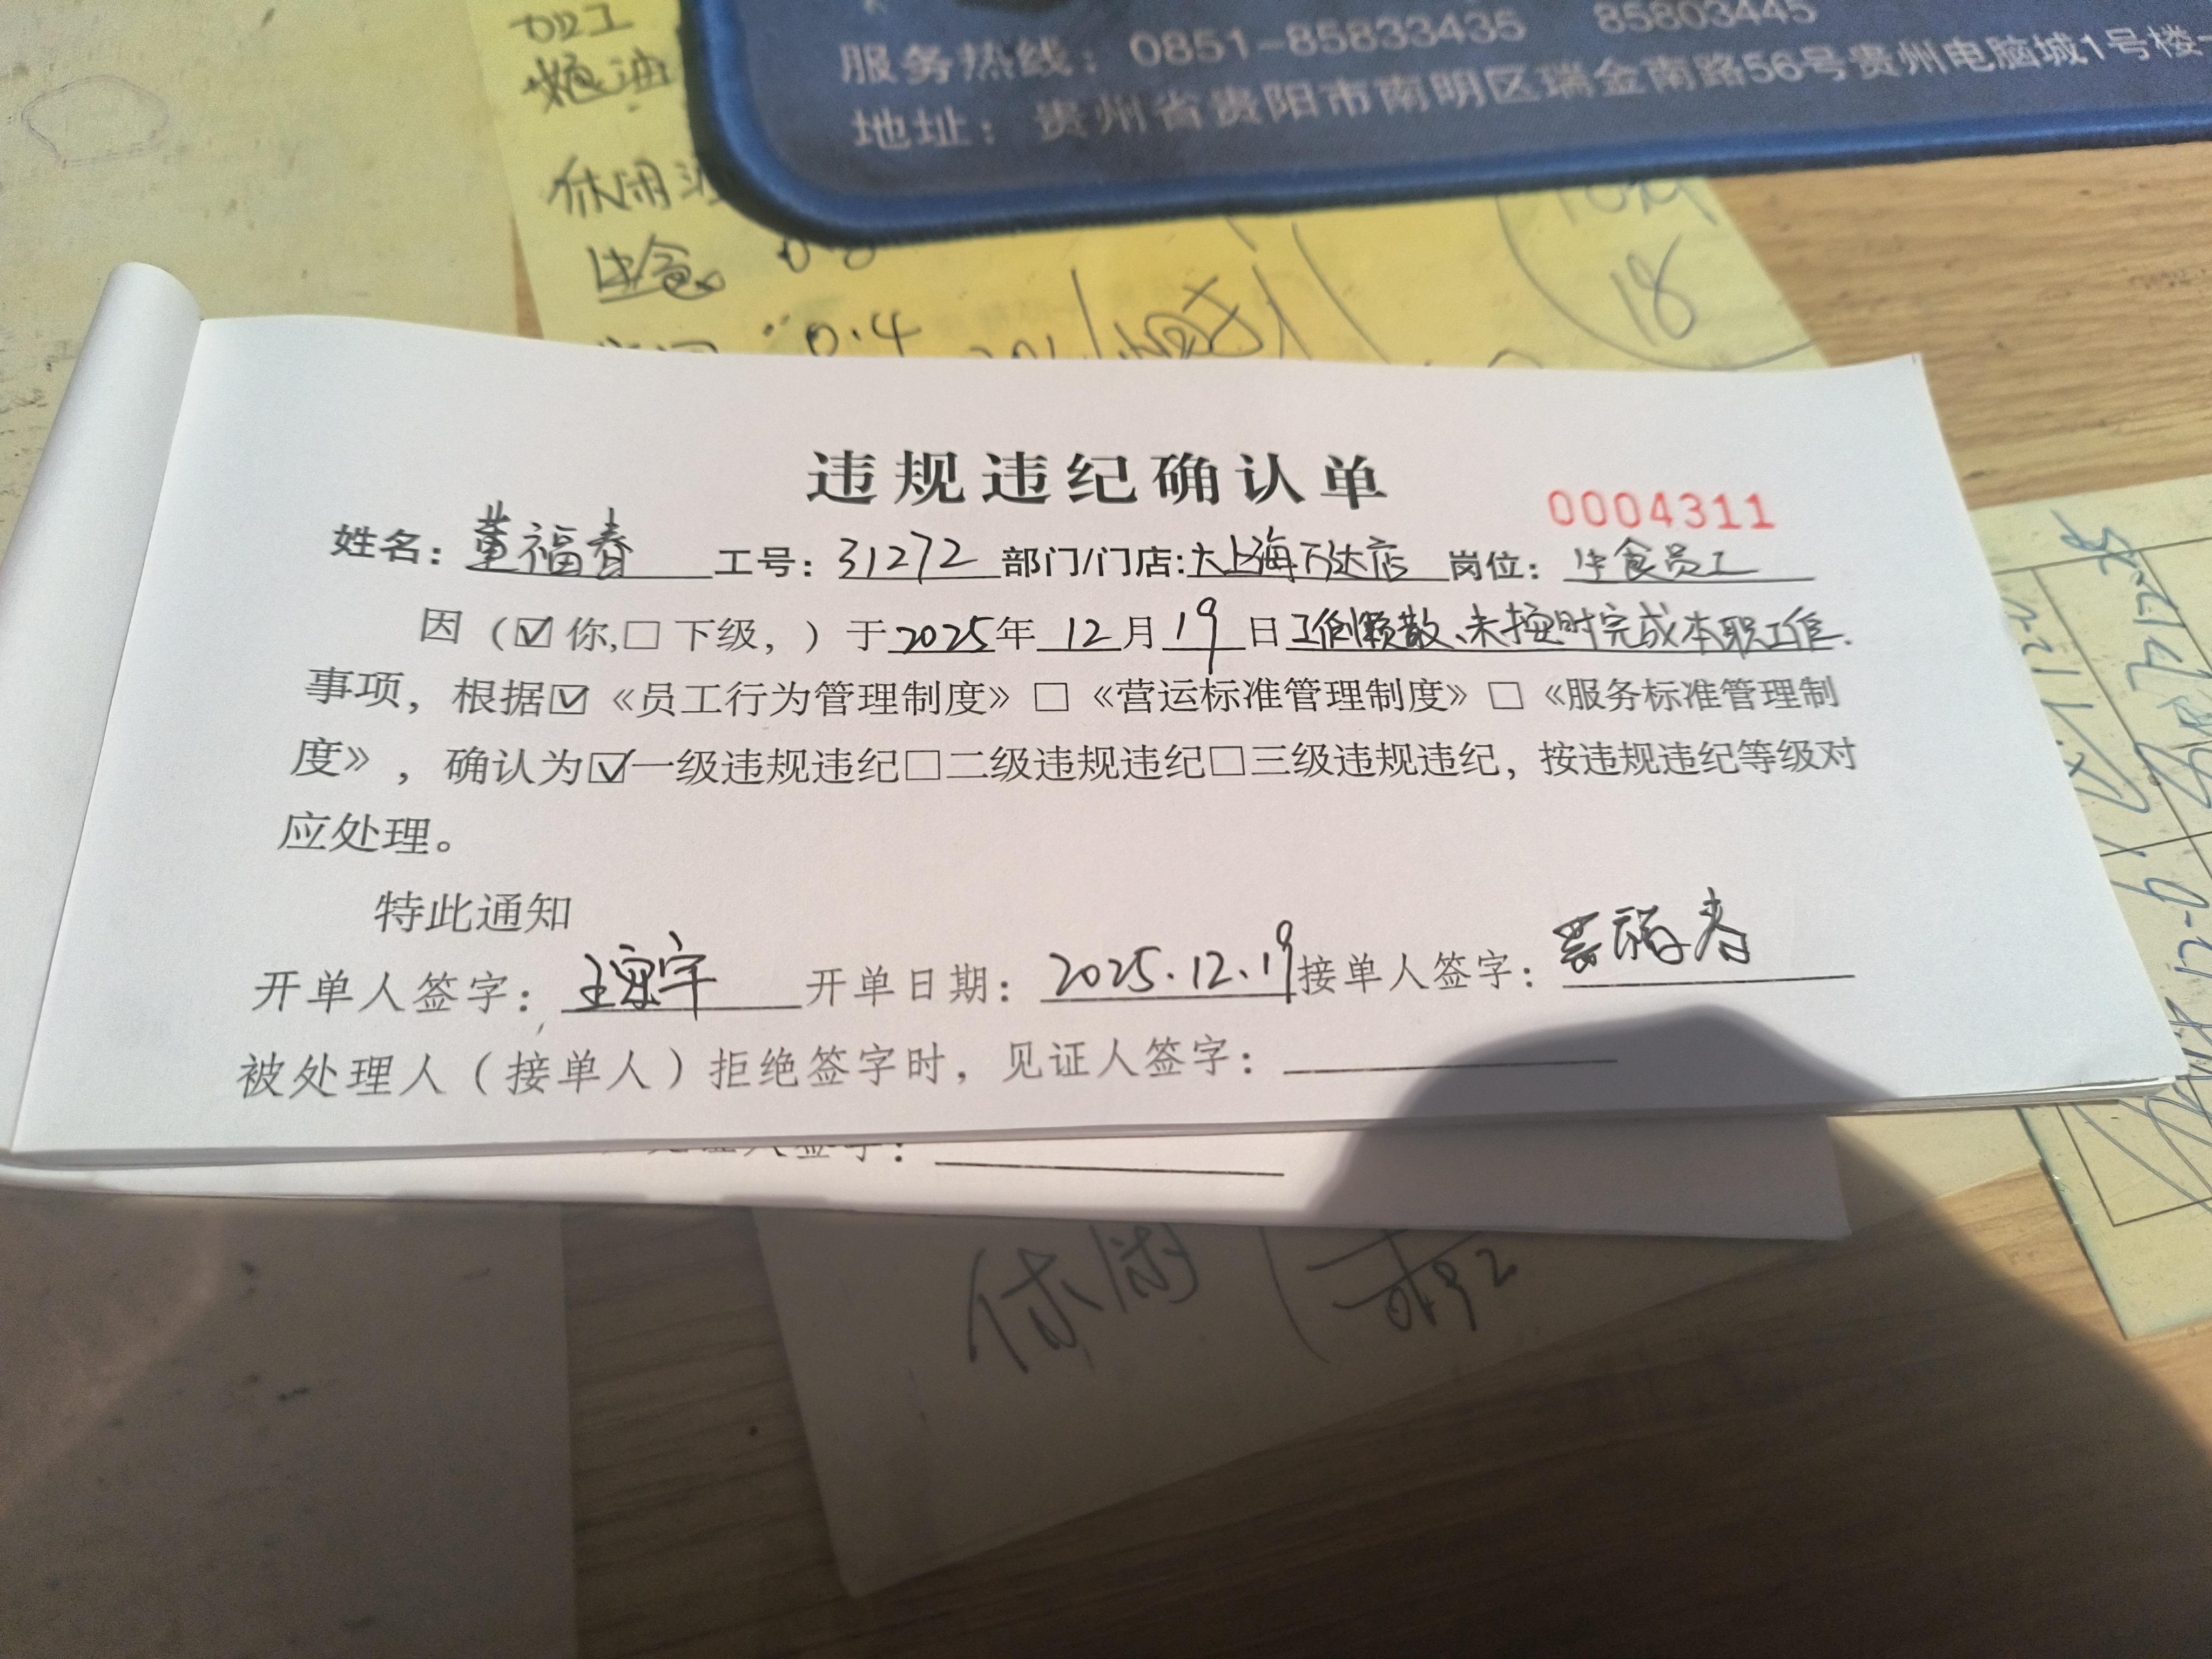 加工
休闲
服务热线：0851-85833435 85803445
地址：贵州省贵阳市南明区瑞金南路56号贵州电脑城1号楼
0.8
0.4
18
违规违纪确认单
0004311
姓名：董福春 工号：31272 部门/门店:大上海万达店 岗位：生食员工
因（☑你,□下级，）于2025年12月19日工作懒散、未按时完成本职工作.
事项，根据☑《员工行为管理制度》□《营运标准管理制度》□《服务标准管理制
度》，确认为☑一级违规违纪□二级违规违纪□三级违规违纪，按违规违纪等级对
应处理。
特此通知
开单人签字：王 宇 开单日期：2025.12.19 接单人签字：董福春
被处理人（接单人）拒绝签字时，见证人签字：
签字：
休闲